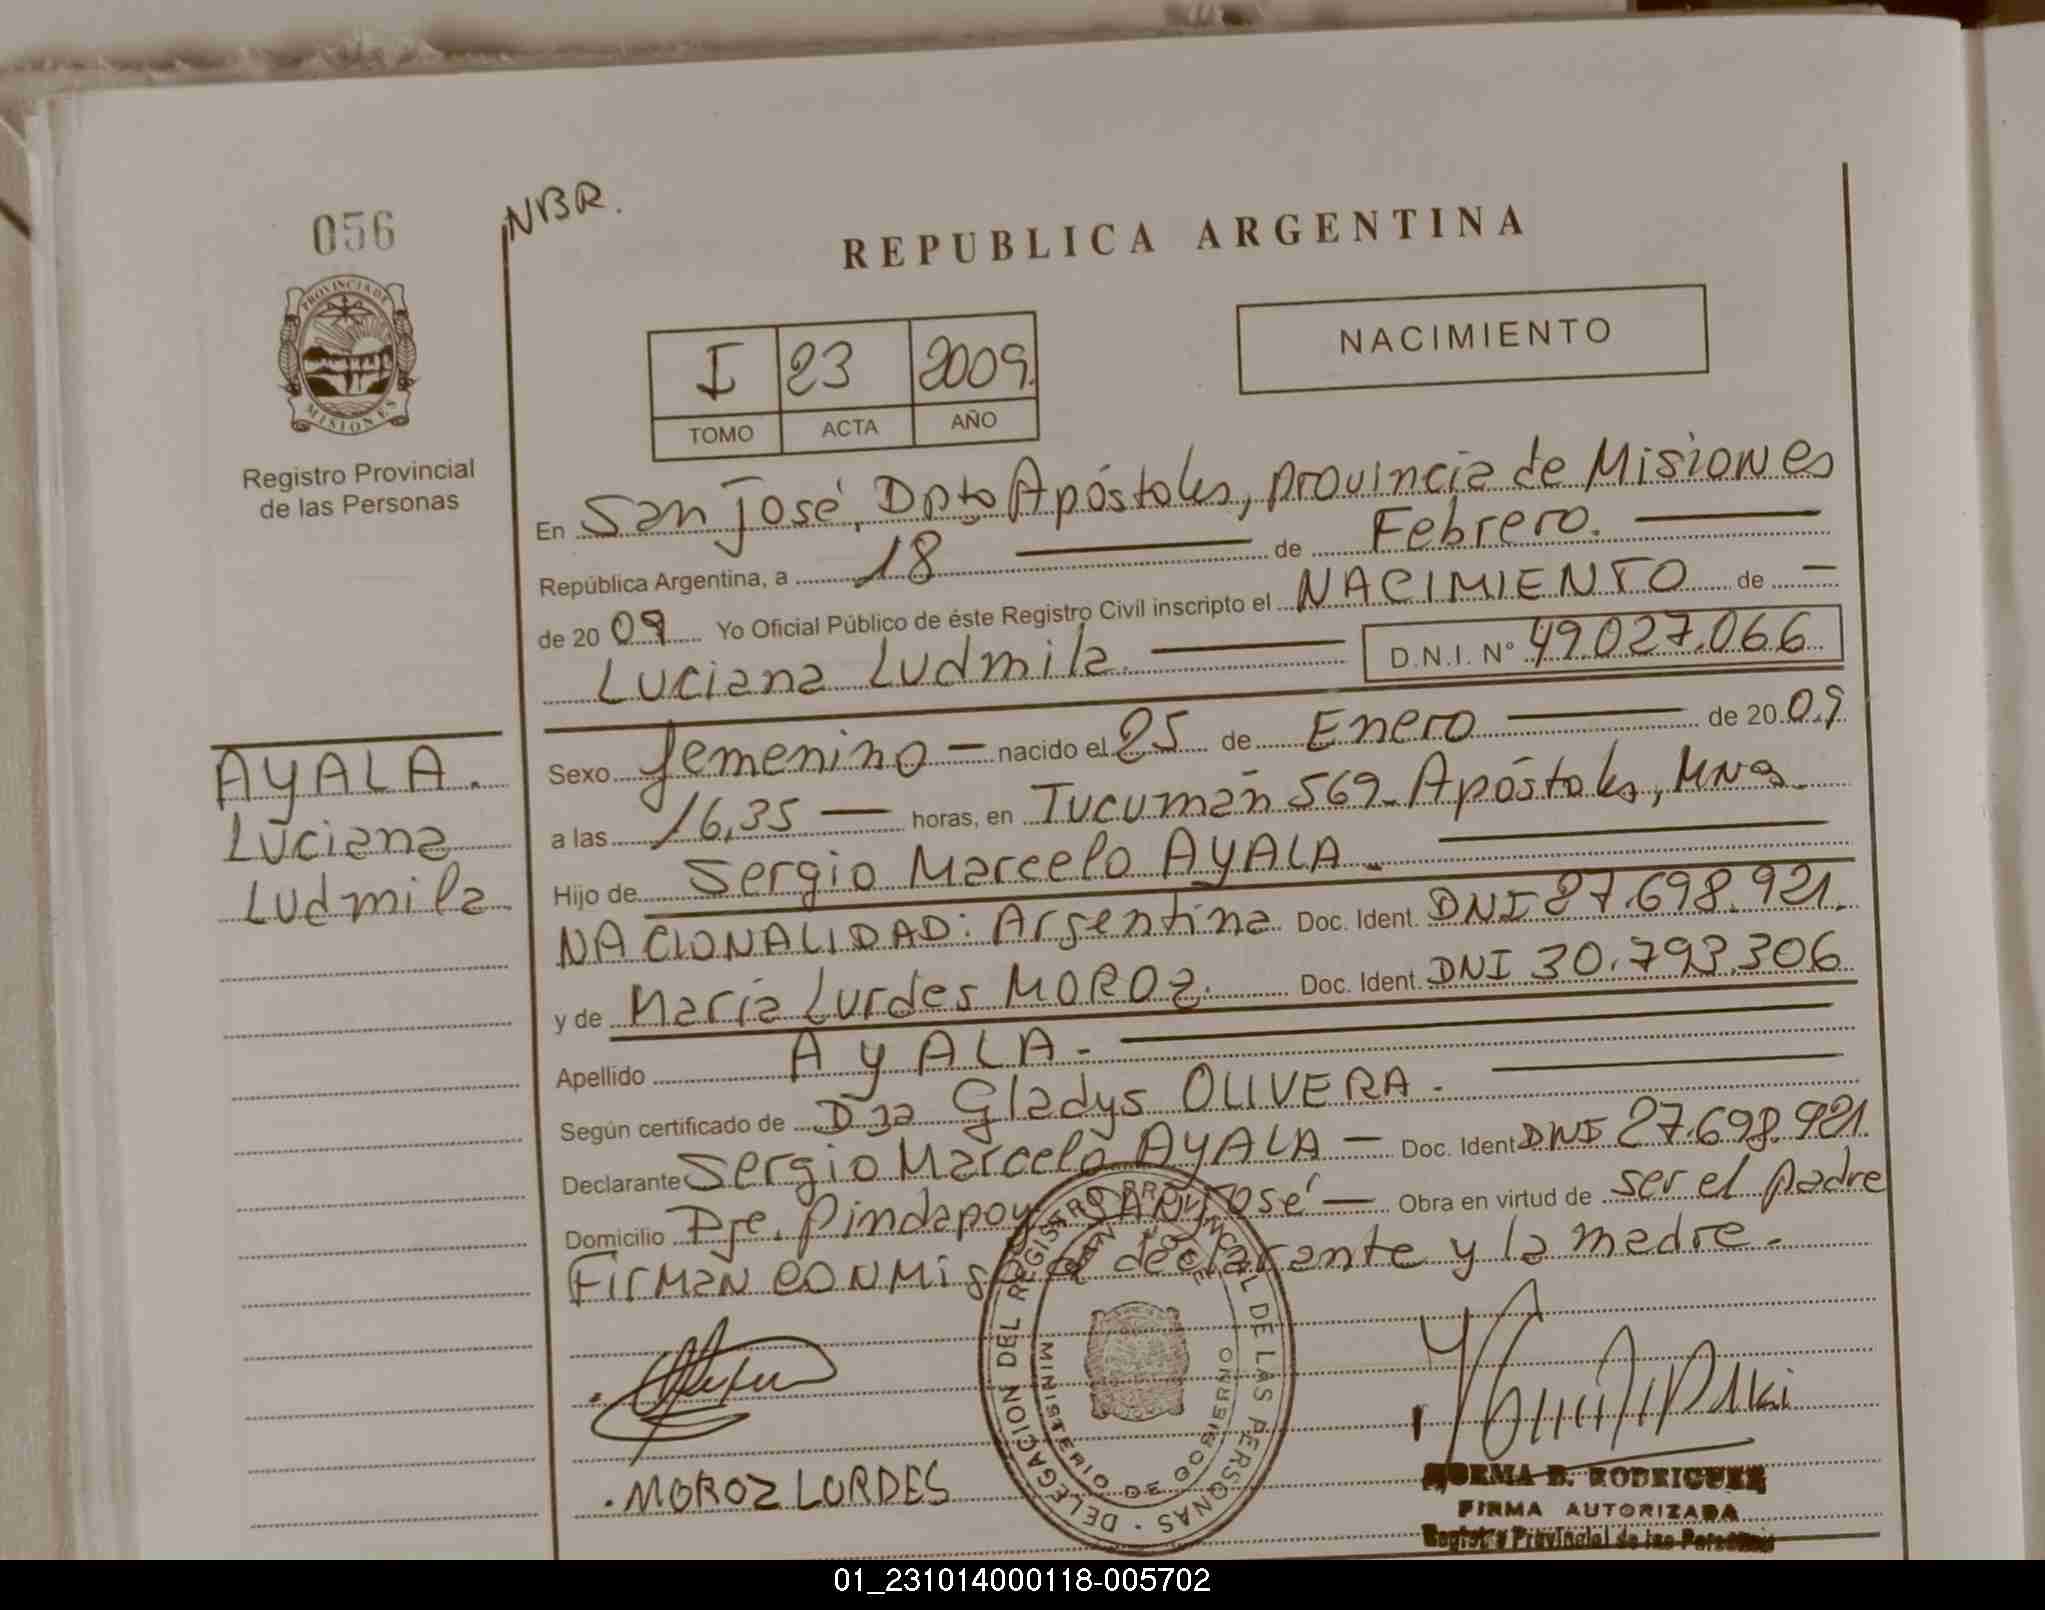 056
NBR.
PROVINCIA DE
MISIONES
Registro Provincial
de las Personas
REPUBLICA ARGENTINA
I 23 2009.
TOMO ACTA AÑO
NACIMIENTO
En San José, Dpto Apóstoles, provincia de Misiones
República Argentina, a 18 de Febrero.
de 2009 Yo Oficial Público de éste Registro Civil inscripto el NACIMIENTO de
Luciana Ludmila. D.N.I. N° 49.027.066
AYALA.
Luciana
Ludmila
Sexo femenino nacido el 25 de Enero de 2009
a las 16,35 horas, en Tucumán 569. Apóstoles, Mnes.
Hijo de Sergio Marcelo AYALA.
NACIONALIDAD: Argentina Doc. Ident. DNI 27.698.921.
y de María Lurdes MOROZ. Doc. Ident. DNI 30.793.306
Apellido AYALA.
Según certificado de Dra Gladys OLIVERA.
Declarante Sergio Marcelo AYALA Doc. Ident DNI 27.698.921.
Domicilio Pje. Pindapoy SAN José Obra en virtud de ser el padre
Firman conmigo el declarante y la madre.
DELEGACION DEL REGISTRO PROVINCIAL DE LAS PERSONAS
SAN JOSE
MINISTERIO DE GOBIERNO
. MOROZ LURDES
NORMA B. RODRIGUEZ
FIRMA AUTORIZADA
Registro Provincial de las Personas
01_231014000118-005702